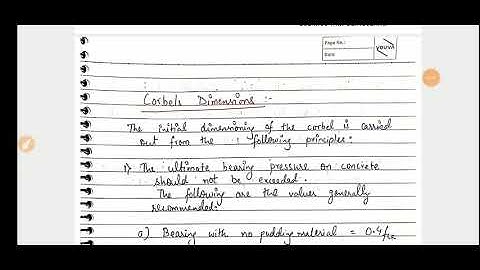 Page No.:
Date:
YOUVA
Corbels Dimensions :-
The initial dimensioning of the corbel is carried
out from the following principles:
1) The ultimate bearing pressure on concrete
should not be exceeded.
The following are the values generally
recommended:
a) Bearing with no pudding material = 0.4 fck